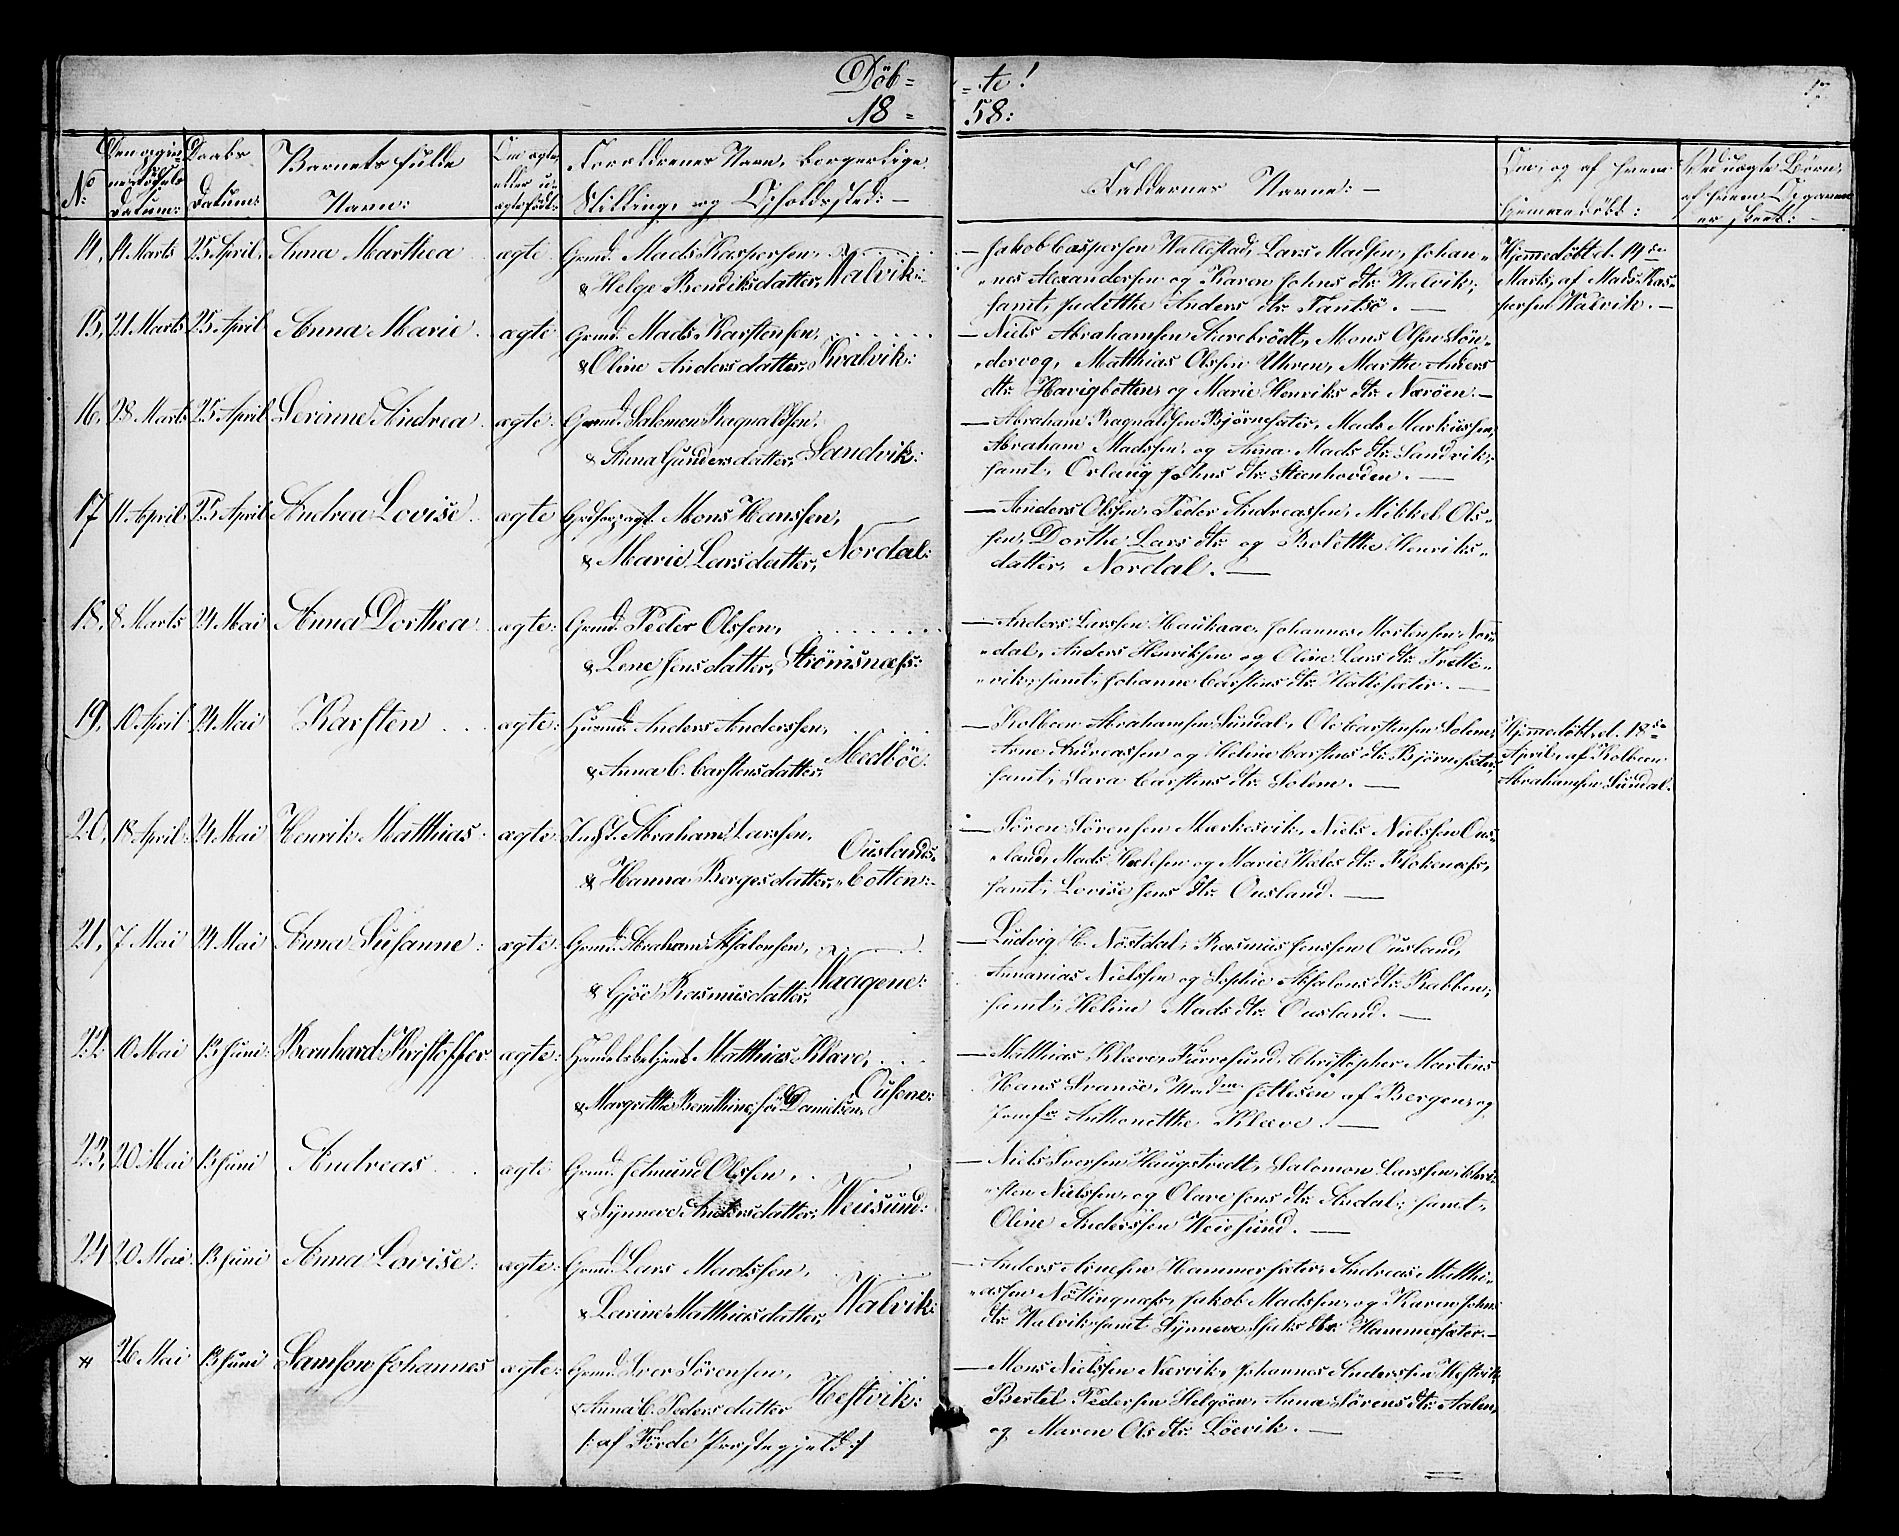 Døb= =te!
18= 58:
17.
No
Den ...
Datum:
Daabs
Datum:
Barnets fulde
Navn:
Om ægte
eller u-
ægte født:
Forældrenes Navn, borgerlige
Stilling, og Opholdssted: —
Faddernes Navne: —
Om, og af hvem
hjemmedøbt:
Ved uægte Børn,
af hvem Opgaven
er skeet: —
14, 14 Marts 25 April, Anna Marthea ægte Grmd. Mads Kaspersen,
& Helge Bendiksdatter, Walvik:
— Jakob Caspersen Wallestad, Lars Madsen, Johan-
nes Alexandersen og Karen Johns dtr. Walvik,
samt, Judithe Anders dtr. Tantsø. —
Hjemmedøbt d. 14de
Marts, af Mads Kas-
persen Walvik. —
15, 21 Marts 25 April Anna Marie ægte Grmd. Mads Karstensen,
& Oline Andersdatter, Kvalvik:
— Niels Abrahamsen Aurebrödt, Mons Olsen Sön-
dervog, Matthias Olsen Uhren, Marthe Anders
dtr. Havigbotten, og Marie Henriks dtr. Nærøen. —
16, 28 Marts 25 April Serinne Andrea ægte: Grmd. Salomon Ragnaldsen,
& Anna Gundersdatter, Sandvik:
— Abraham Ragnaldsen Bjørnsæter, Mads Markussen,
Abraham Madssen, og Anna Mads dtr. Sandvik,
samt, Orlaug Johns dtr. Steenhovden. —
17 11 April 25 April Andrea Lovise ægte Mons Hanssen,
& Marie Larsdatter, Nordal:
— Anders Olssen, Peder Andreassen, Mikkel Ols-
sen, Dorthe Lars dtr. og Bolette Henriks-
datter, Nordal. —
18, 8 Marts 24 Mai Anna Dorthea ægte: Grmd. Peder Olssen,
& Lene Jensdatter, Strömsnæss:
— Anders Larssen Haukaae, Johannes Mortensen Nor-
dal, Anders Henriksen og Oline Lars dtr. Tretti-
vik, samt, Johanne Carstens dtr. Hattesæter. —
19, 10 April 24 Mai Karsten ægte: Huusmd. Anders Anderssen,
& Anna C. Carstensdatter, Medböe:
— Kolbeen Abrahamsen Sündal, Ole Carstensen Solem,
Arne Andreassen og Heline Carstens dtr. Bjørnsæter,
samt, Sara Carstens dtr. Solem. —
Hjemmedøbt, d. 18de
April, af Kolbeen
Abrahamsen Sündal.
20, 18 April 24 Mai Henrik Matthias ægte: Inst. Abraham Larssen,
& Hanna Bergesdatter, Ouslands-
botten:
— Sören Sörensen Markesvik, Niels Nielssen Ous-
land, Mads Helesen og Marie Heles dtr. Flokenæss,
samt, Lovise Jens dtr. Ousland. —
21, 7 Mai 24 Mai Anna Susanne: ægte: Grmd. Abraham Absalonsen,
& Gjøe Rasmusdatter, Waagene:
— Ludvig H. Nöstdal, Rasmus Jenssen Ousland,
Annanias Nielssen og Sophie Absalons dtr. Rabben,
samt, Heline Mads dtr. Ousland. —
22 10 Mai 13 Juni: Bernhard Kristoffer ægte: Handelsbetjent Matthias Klæve,
& Margrethe Benthine, född Danielsen, Ousene:
— Matthias Klæve, Furresund, Christopher Martens
Hans Svanöe, Madm. Jellesen af Bergen, og
Jomfr. Anthonette Klæve. —
23, 20 Mai 13 Juni Andreas ægte Grmd. Edmund Olssen,
& Synneve Andersdatter, Weisund:
— Niels Iversen Haugstvedt, Salomon Larssen, Chri-
sten Nielssen, og Olave Jens dtr. Andal, samt,
Oline Anderssen Weisund. —
24 20 Mai 13 Juni Anna Lovise: ægte: Grmd. Lars Madssen,
& Lavine Matthiasdatter, Walvik:
— Anders Arnesen Hammersæter, Andreas Matthi-
assen Nöttingnæss, Jakob Madssen, og Karen Johns
dtr. Walvik, samt Synneve Isaks dtr. Hammersæter. —
26 Mai 13 Juni Samson Johannes ægte: Grmd. Iver Sörensen,
& Anna C. Pedersdatter Hestvik:
/: af Förde Præstegjeld :/
— Mons Nielssen Nærvik, Johannes Anderssen Hestvik,
Bertel Pedersen Helgöen, Anna Sörens dtr. Aalen,
og Maren Ols dtr. Löevik. —